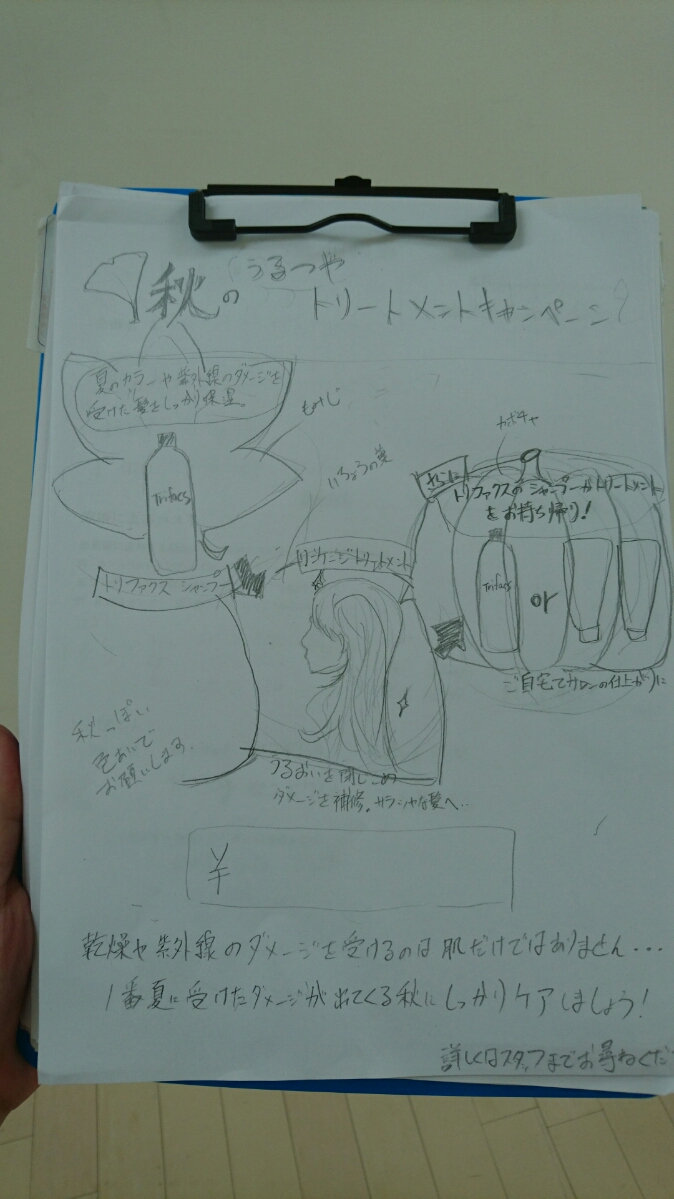 うるつや
秋の
トリートメントキャンペーン
夏のカラーや紫外線のダメージを
受けた髪をしっかり保湿。
もみじ
いちょうの葉
カボチャ
Trifacs
トリファクス シャンプー
リンケージトリートメント
さらに
トリファクスのシャンプーかトリートメント
をお持ち帰り!
Trifacs
or
ご自宅でサロンの仕上がりに
秋っぽい
色あいで
お願いします。
うるおいを閉じこめ
ダメージを補修。サラツヤな髪へ..
¥
乾燥や紫外線のダメージを受けるのは肌だけではありません...
1番夏に受けたダメージが出てくる秋にしっかりケアしましょう!
詳しくはスタッフまでお尋ねくだ